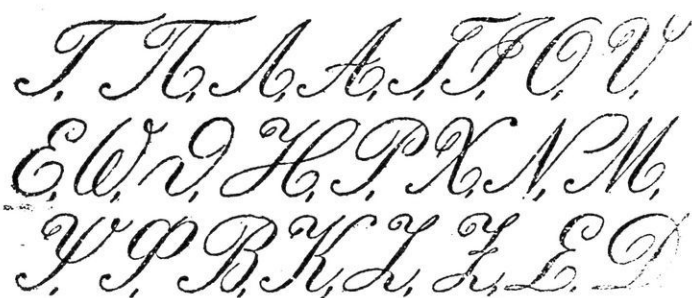 Γ, Π, Λ, Α, Ι, Τ, Ο, Υ,
Ε, Ω, Θ, Η, Ρ, Χ, Ν, Μ,
Ψ, Φ, Β, Κ, Ζ, Ξ, Σ, Δ